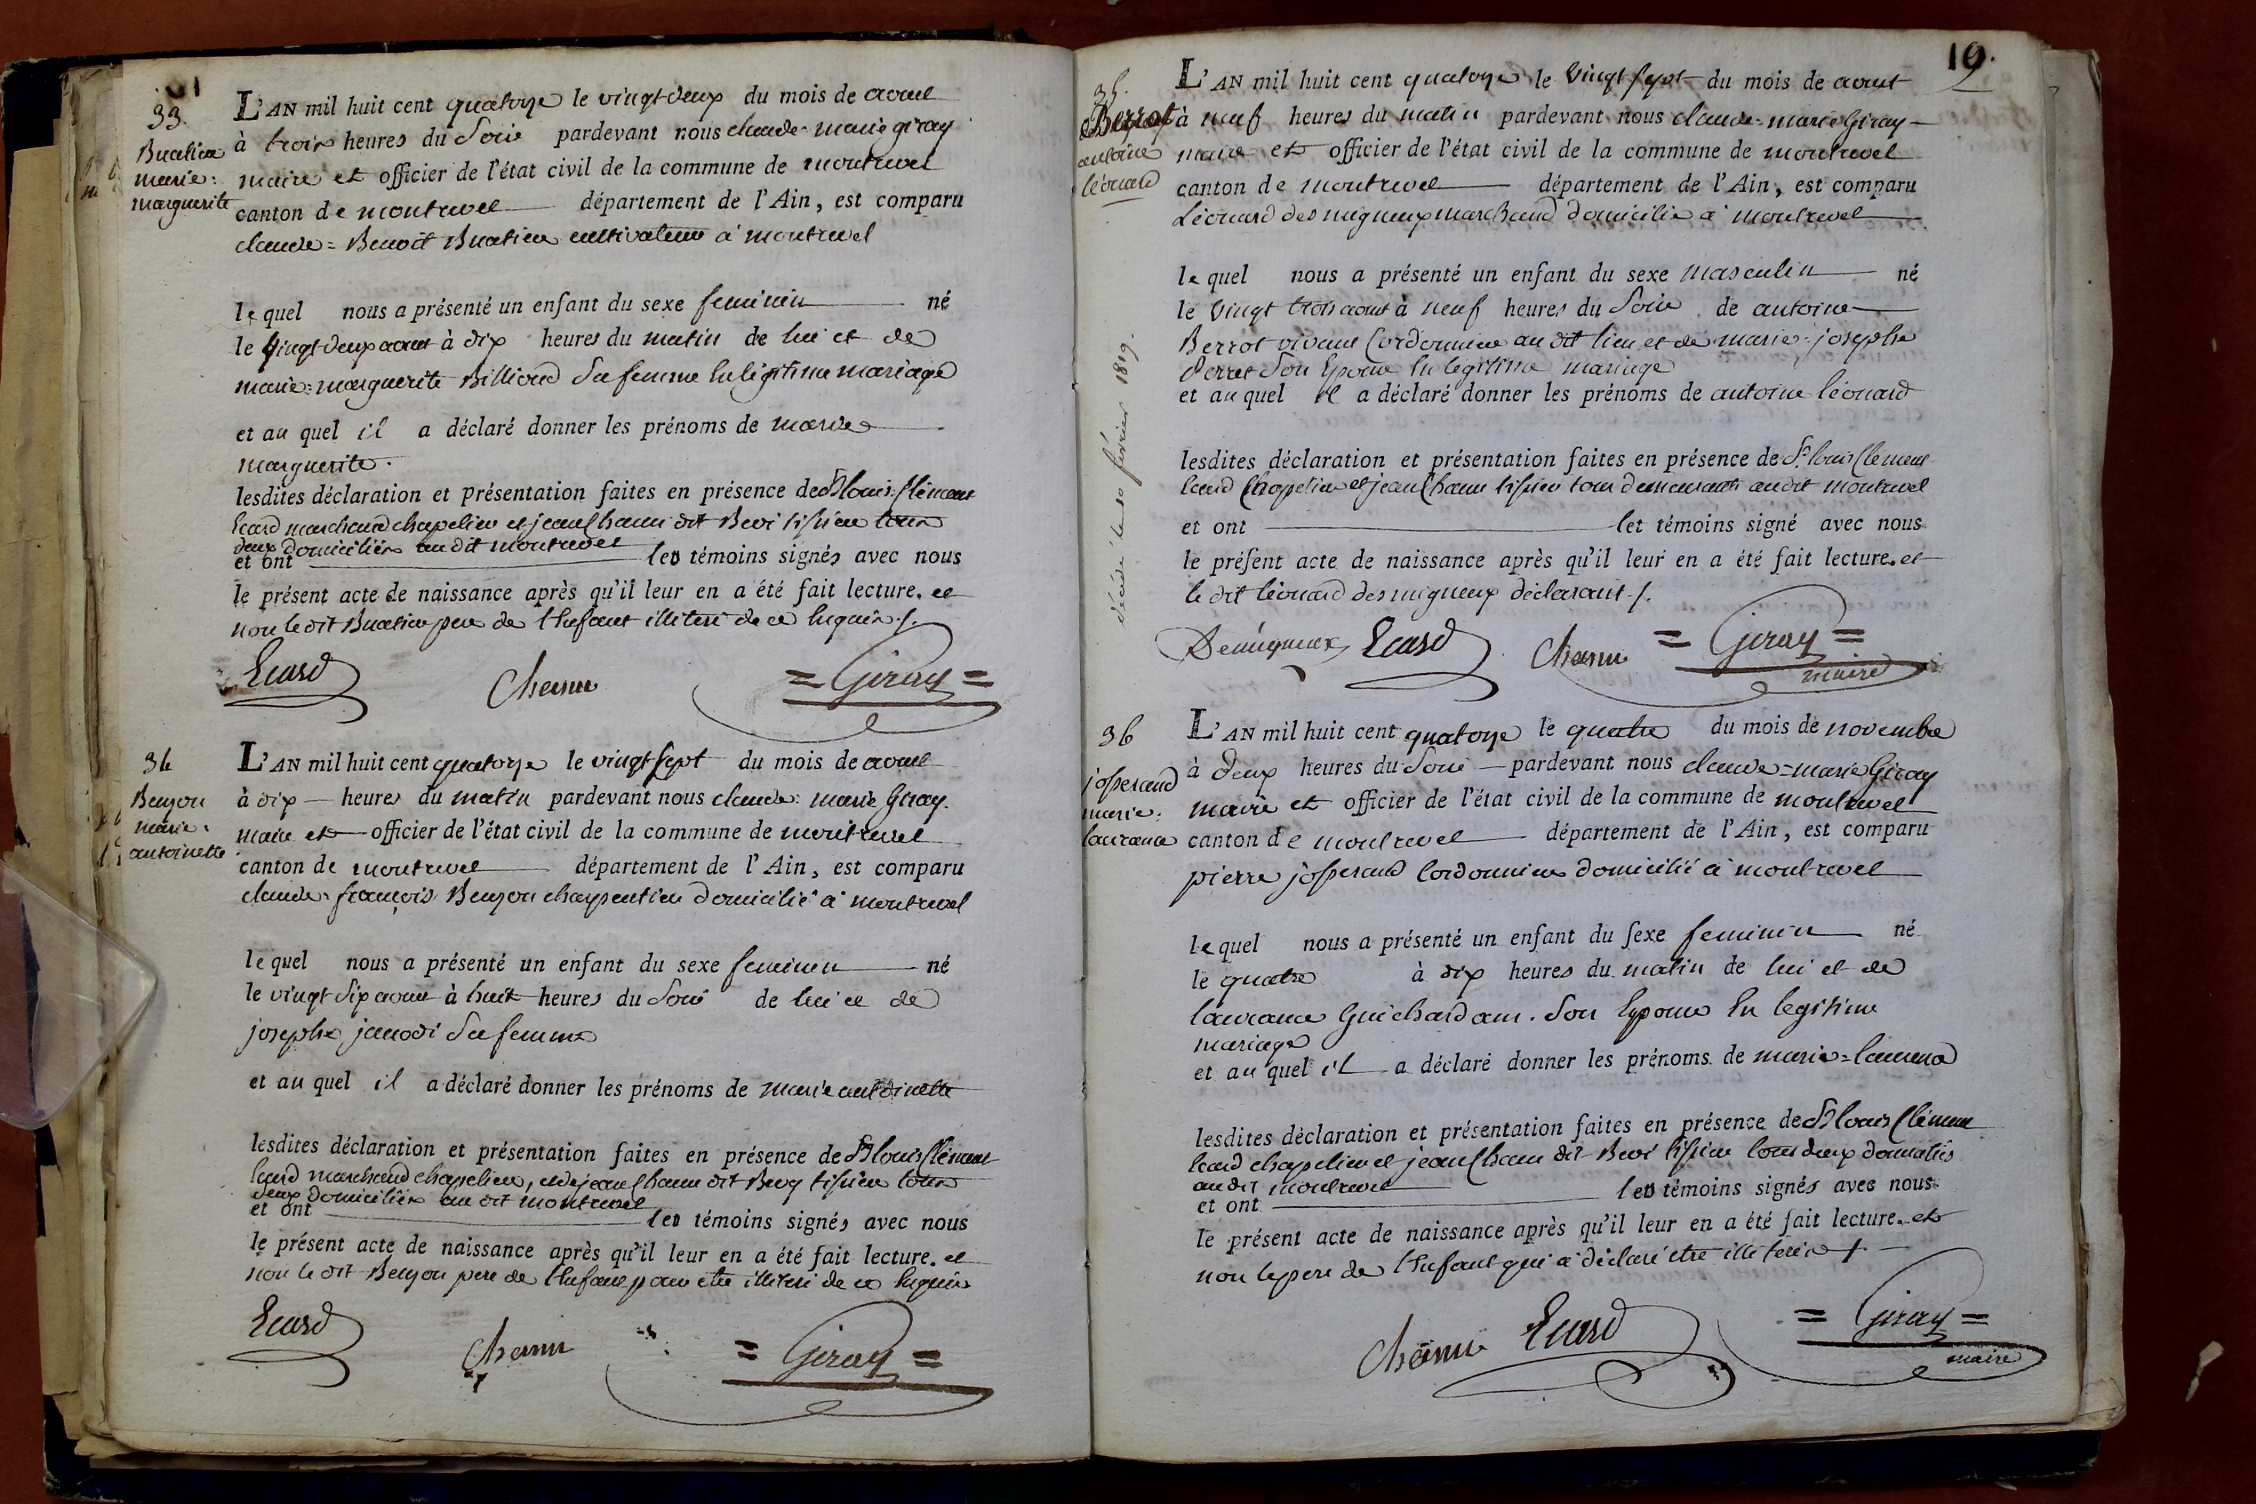 33.
Buatier
marie=
marguerite
L'AN mil huit cent quatorze le vingt deux du mois de aout
à trois heures du Soir pardevant nous claude=marie giray
maire et officier de l'état civil de la commune de montrevel
canton de montrevel département de l'Ain, est comparu
claude=Benoit Buatier cultivateur à montrevel
lequel nous a présenté un enfant du sexe feminin né
le vingt deux aout à dix heures du matin de lui et de
marie=marguerite Billioud Sa femme En légitime mariage
et au quel il a déclaré donner les prénoms de marie
marguerite.
lesdites déclaration et présentation faites en présence de Sr louis Clément
Ecard marchand chapelier et jean Chanu dit Bevi tissier tous
deux domiciliés au dit montrevel
et ont les témoins signés avec nous
le présent acte de naissance après qu'il leur en a été fait lecture. et
non le dit Buatier pere de l'Enfant illiteré de ce Enquis ./.
Ecard Chanu = Giray =
34
Benzon
marie=
antoinette
L'AN mil huit cent quatorze le vingt sept du mois de aout
à dix heures du matin pardevant nous claude=marie Giray
maire et officier de l'état civil de la commune de montrevel
canton de montrevel département de l'Ain, est comparu
claude=françois Benzon charpentier domicilié à montrevel
lequel nous a présenté un enfant du sexe feminin né
le vingt Six aout à huit heures du Soir de lui et de
josephe janodi Sa femme
et au quel il a déclaré donner les prénoms de marie antoinette
lesdites déclaration et présentation faites en présence de Sr louis Clément
Ecard marchand chapelier, et de jean Chanu dit Bevy tissier tous
deux domiciliés au dit montrevel
et ont les témoins signés avec nous
le présent acte de naissance après qu'il leur en a été fait lecture. et
non le dit Benzon pere de l'Enfant pour etre illiteré de ce Enquis
Ecard Chanu = Giray =
19.
35.
Berrot
antoine
léonard
décédé le 10 février 1819.
L'AN mil huit cent quatorze le vingt sept du mois de aout
à neuf heures du matin pardevant nous claude=marie Giray
maire et officier de l'état civil de la commune de montrevel
canton de montrevel département de l'Ain, est comparu
Léonard desmigneux marchand domicilié à montrevel
lequel nous a présenté un enfant du sexe masculin né
le vingt trois aout à neuf heures du Soir de antoine
Berrot vivant Cordonnier au dit lieu et de marie=josephe
Perret Son Epouse En legitime mariage
et au quel il a déclaré donner les prénoms de antoine léonard
lesdites déclaration et présentation faites en présence de Sr louis Clément
Ecard Chapelier et jean Chanu tissier tous demeurants au dit montrevel
et ont let témoins signé avec nous
le présent acte de naissance après qu'il leur en a été fait lecture. et
le dit léonard desmigneux déclarant ./.
Demigneux Ecard Chanu = Giray =
maire
36
josserand
marie=
laurence
L'AN mil huit cent quatorze le quatre du mois de novembre
à deux heures du Soir pardevant nous claude=marie Giray
maire et officier de l'état civil de la commune de montrevel
canton de montrevel département de l'Ain, est comparu
pierre josserand Cordonnier domicilié à montrevel
lequel nous a présenté un enfant du sexe feminin né
le quatre à dix heures du matin de lui et de
laurence Guichardan. Son Epouse En legitime
mariage
et au quel il a déclaré donner les prénoms de marie=laurence
lesdites déclaration et présentation faites en présence de Sr louis Clément
Ecard chapelier et jean Chanu dit Bevi tissier tous deux domiciliés
au dit montrevel
et ont les témoins signés avec nous
le présent acte de naissance après qu'il leur en a été fait lecture. et
non le pere de l'Enfant qui a déclaré etre illiteré ./.
Chanu Ecard = Giray =
maire